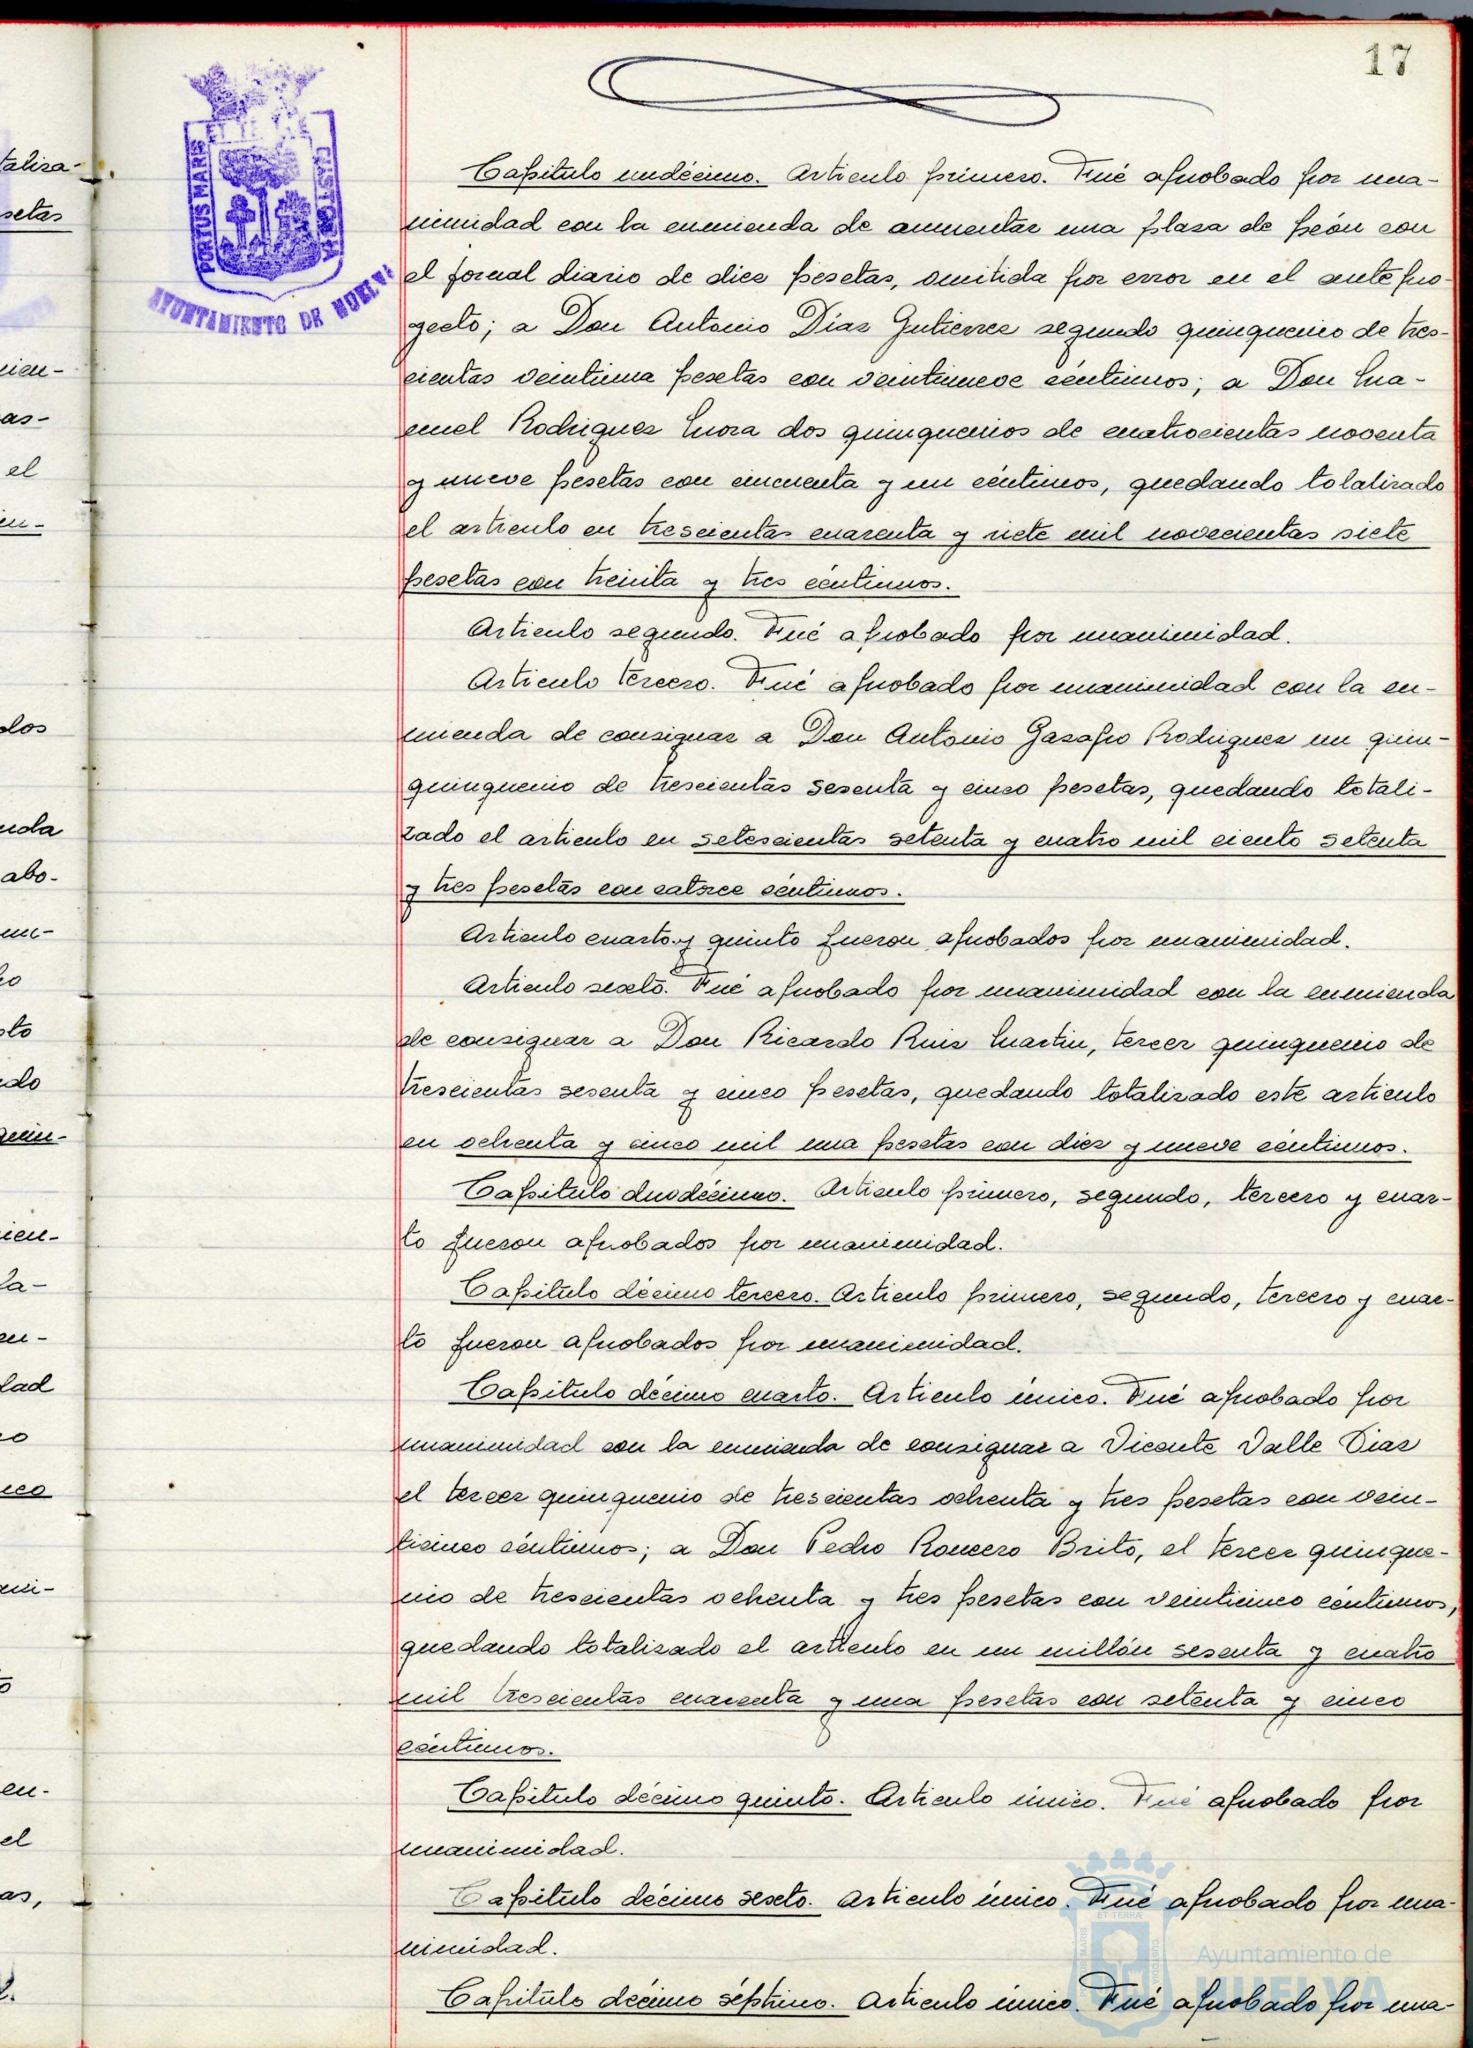 17
PORTUS MARIS
CUSTODIA
AYUNTAMIENTO DE HUELVA
Capitulo undécimo. Articulo primero. Fué aprobado por una-
nimidad con la enmienda de aumentar una plaza de peón con
el jornal diario de diez pesetas, omitida por error en el antepro-
yecto; a Don Antonio Díaz Gutierrez segundo quinquenio de tres-
cientas veintiuna pesetas con veintinueve céntimos; a Don Ma-
nuel Rodriguez Mora dos quinquenios de cuatrocientas noventa
y nueve pesetas con cincuenta y un céntimos, quedando totalizado
el articulo en trescientas cuarenta y siete mil novecientas siete
pesetas con treinta y tres céntimos.
Articulo segundo. Fué aprobado por unanimidad.
Articulo tercero. Fué aprobado por unanimidad con la en-
mienda de consignar a Don Antonio Gazapo Rodriguez un quin-
quinquenio de trescientas sesenta y cinco pesetas, quedando totali-
zado el articulo en setescientas setenta y cuatro mil ciento setenta
y tres pesetas con catorce céntimos.
Articulo cuarto y quinto fueron aprobados por unanimidad.
Articulo sexto. Fué aprobado por unanimidad con la enmienda
de consignar a Don Ricardo Ruiz Martin, tercer quinquenio de
trescientas sesenta y cinco pesetas, quedando totalizado este articulo
en ochenta y cinco mil una pesetas con diez y nueve céntimos.
Capitulo duodécimo. Articulo primero, segundo, tercero y cuar-
to fueron aprobados por unanimidad.
Capitulo décimo tercero. Articulo primero, segundo, tercero y cuar-
to fueron aprobados por unanimidad.
Capitulo décimo cuarto. Articulo único. Fué aprobado por
unanimidad con la enmienda de consignar a Vicente Valle Diaz
el tercer quinquenio de trescientas ochenta y tres pesetas con vein-
ticinco céntimos; a Don Pedro Romero Brito, el tercer quinque-
nio de trescientas ochenta y tres pesetas con veinticinco céntimos,
quedando totalizado el articulo en un millón sesenta y cuatro
mil trescientas cuarenta y una pesetas con setenta y cinco
céntimos.
Capitulo décimo quinto. Articulo único. Fué aprobado por
unanimidad.
Capitulo décimo sexto. Articulo único. Fué aprobado por una-
nimidad.
Capitulo décimo séptimo. Articulo único. Fué aprobado por una-
Ayuntamiento de
HUELVA